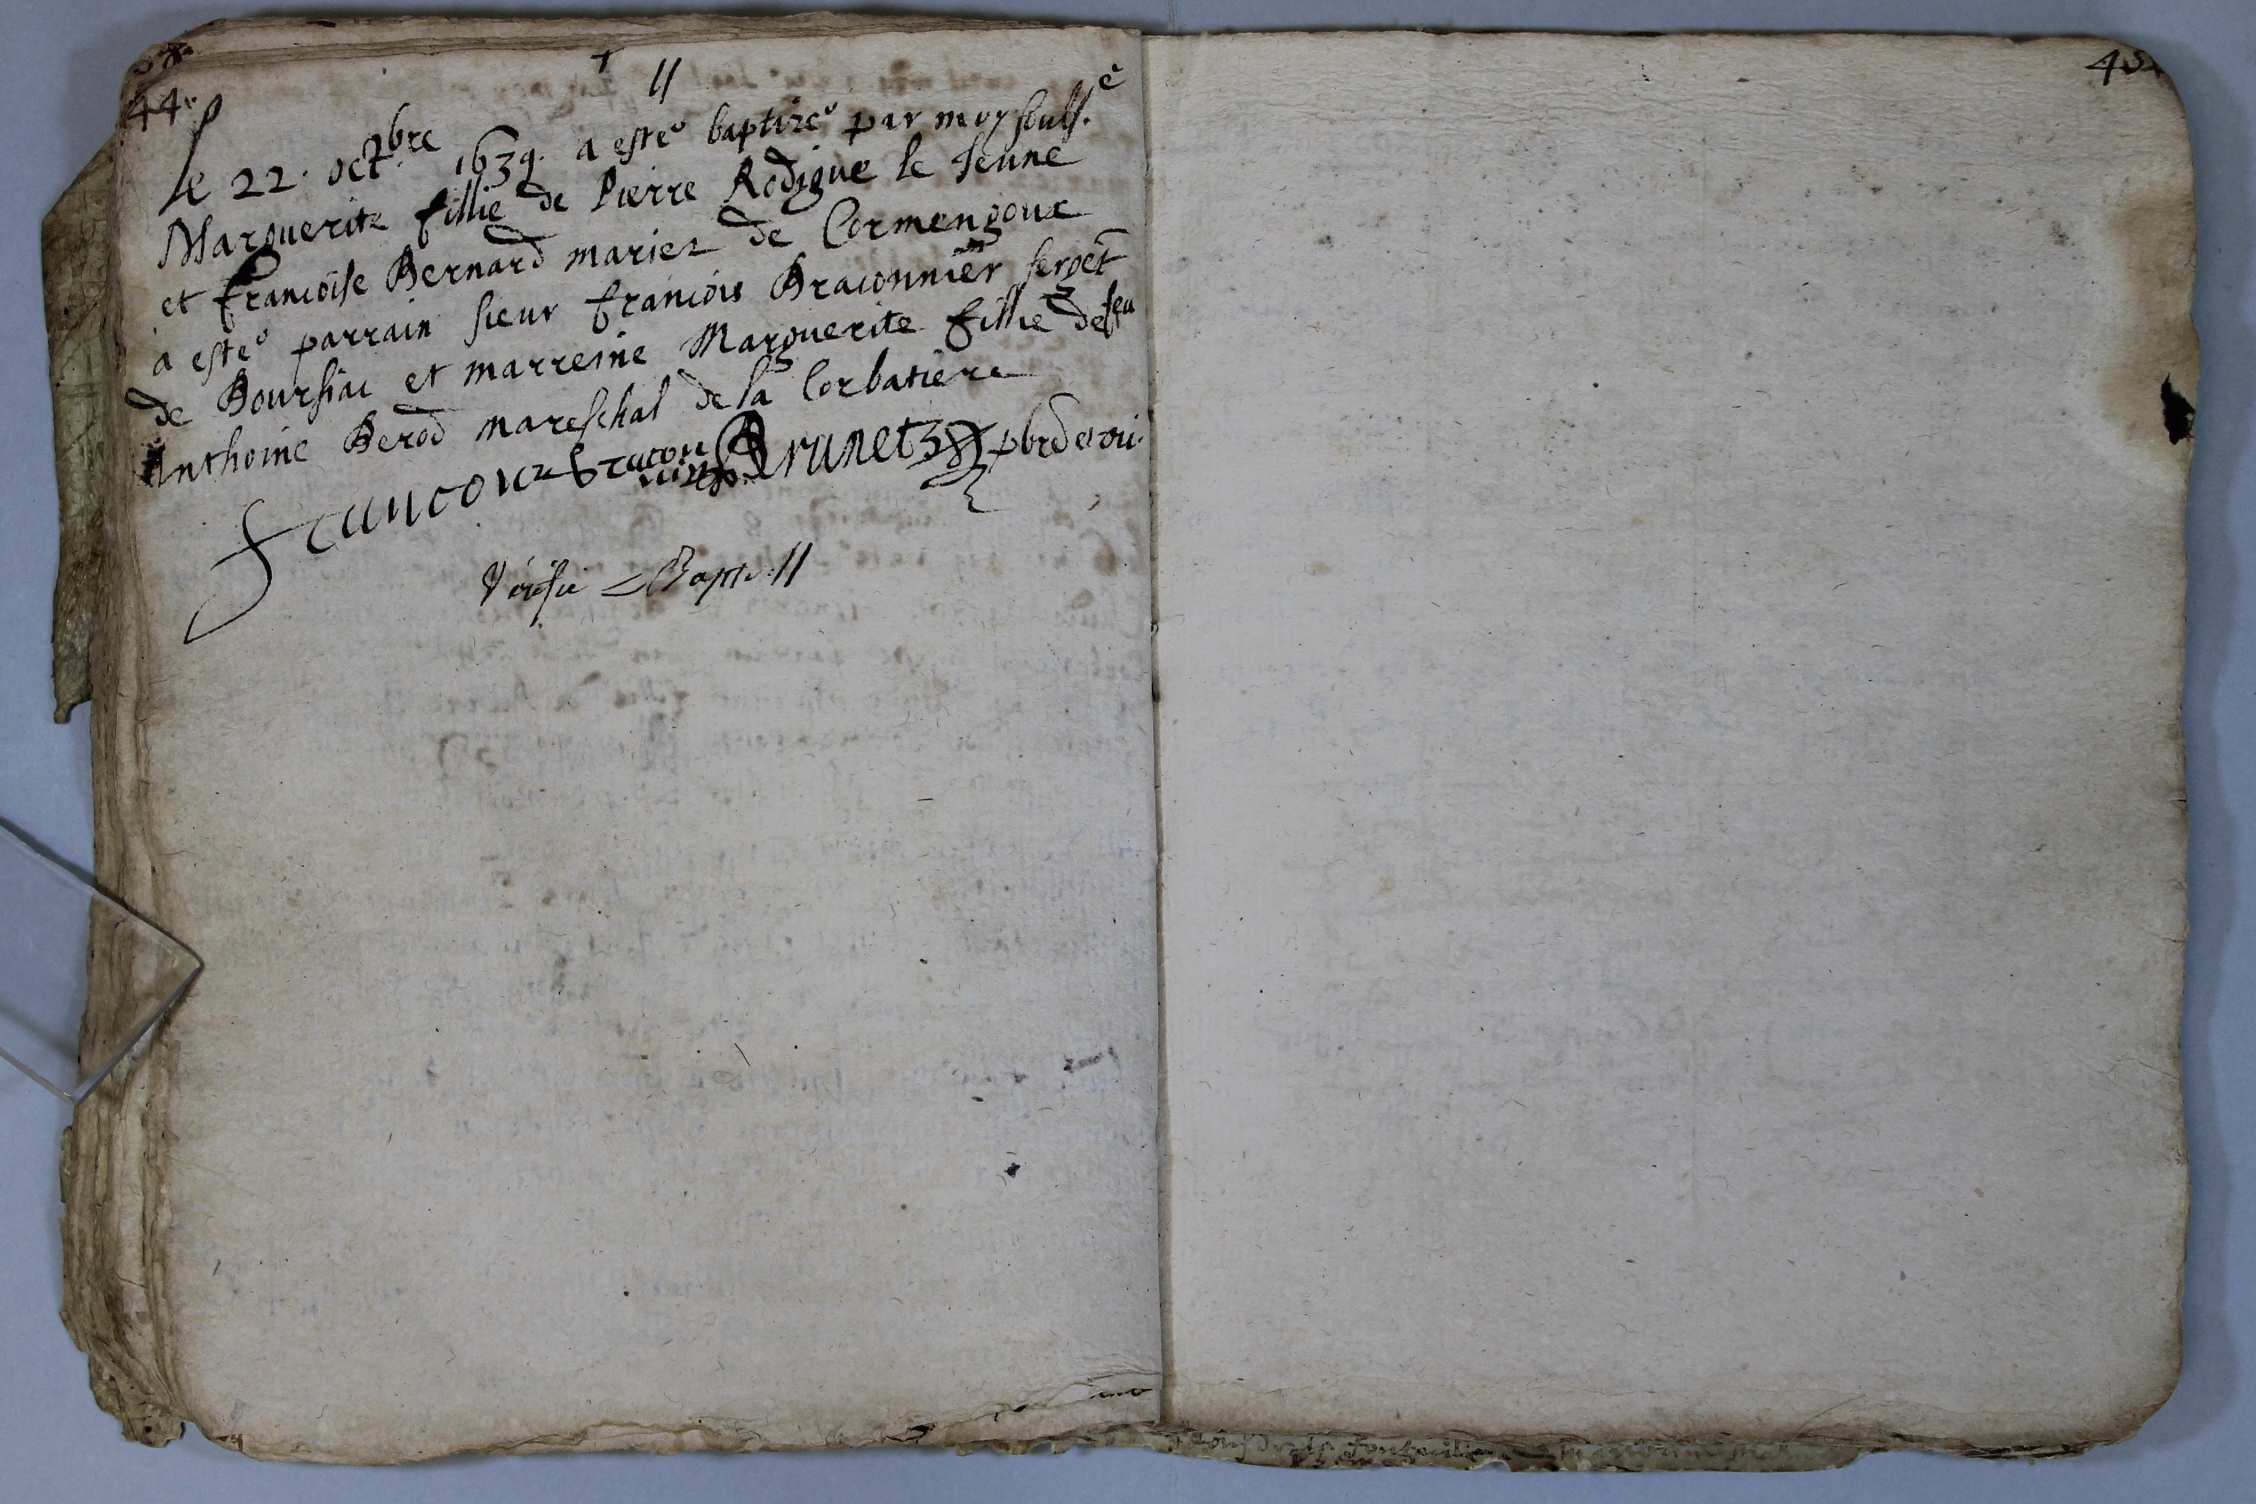 44.
+
11
Le 22. octbre 1639. a esté baptizé par moy soubs.é
Marguerite fillie de Pierre Rodigue le Jeune
et françoise Bernard mariez de Cormengoux
a esté parrain sieur françois Braconnier sergēt
de Boursiac et marreine Marguerite fillie de feu
Anthoine Berod mareschal de la Corbatiere
Brunetz pbre et vic.
Vérifié Bapt. 11
45